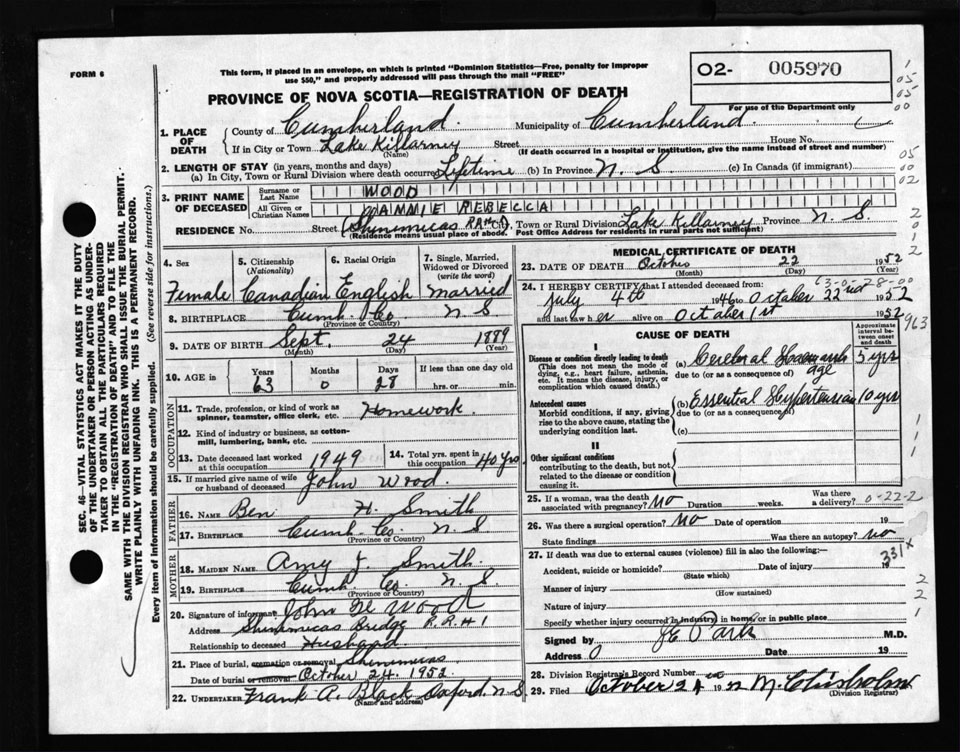 FORM 6
This form, if placed in an envelope, on which is printed "Dominion Statistics—Free, penalty for improper
use $50," and properly addressed will pass through the mail "FREE"
O2- 005970
For use of the Department only
PROVINCE OF NOVA SCOTIA—REGISTRATION OF DEATH
1. PLACE OF DEATH County of Cumberland. Municipality of Cumberland.
If in City or Town Lake Killarney Street House No.
(Name) (If death occurred in a hospital or institution, give the name instead of street and number)
2. LENGTH OF STAY (in years, months and days)
(a) In City, Town or Rural Division where death occurred Lifetime (b) In Province N. S (c) In Canada (if immigrant)
3. PRINT NAME OF DECEASED Surname or Last Name WOOD
All Given or Christian Names ANNIE REBECCA
RESIDENCE No. Street (Shinimicas RR#1) City, Town or Rural Division Lake Killarney Province N. S.
(Residence means usual place of abode. Post Office Address for residents in rural parts not sufficient)
4. Sex Female
5. Citizenship (Nationality) Canadian
6. Racial Origin English
7. Single, Married, Widowed or Divorced (write the word) Married
8. BIRTHPLACE Cumb. Co. N. S
(Province or Country)
9. DATE OF BIRTH Sept. 24 1889
(Month) (Day) (Year)
10. AGE in Years 63 Months 0 Days 28 If less than one day old
hrs. or min.
OCCUPATION
11. Trade, profession, or kind of work as
spinner, teamster, office clerk, etc. Homework.
12. Kind of industry or business, as cotton-
mill, lumbering, bank, etc.
13. Date deceased last worked
at this occupation 1949
14. Total yrs. spent in
this occupation 40 yrs
15. If married give name of wife
or husband of deceased John Wood.
FATHER
16. NAME Ben H. Smith
17. BIRTHPLACE Cumb. Co. N. S
(Province or Country)
MOTHER
18. MAIDEN NAME Amy J. Smith
19. BIRTHPLACE Cumb. Co. N. S.
(Province or Country)
20. Signature of informant John W Wood
Address Shinimicas Bridge R.R # 1
Relationship to deceased Husband
21. Place of burial, cremation or removal Shinimicas
Date of burial or removal October 24. 1952
22. UNDERTAKER Frank A. Black Oxford. N. S
(Name and address)
MEDICAL CERTIFICATE OF DEATH
23. DATE OF DEATH October 22 1952
(Month) (Day) (Year)
24. I HEREBY CERTIFY that I attended deceased from:
July 4th 1946 to October 22nd 1952
and last saw her alive on October 1st 1952
CAUSE OF DEATH
Approximate interval between onset and death
I
Disease or condition directly leading to death
(This does not mean the mode of
dying, e.g., heart failure, asthenia,
etc. It means the disease, injury, or
complication which caused death.)
(a) Cerebral Hoemorrhage 5 yrs
due to (or as a consequence of)
Antecedent causes
Morbid conditions, if any, giving
rise to the above cause, stating the
underlying condition last.
(b) Essential Hypertension 10 yrs
due to (or as a consequence of)
(c)
II
Other significant conditions
contributing to the death, but not
related to the disease or condition
causing it.
25. If a woman, was the death
associated with pregnancy? No Duration weeks. Was there
a delivery?
0-22-2
26. Was there a surgical operation? No Date of operation 19
State findings Was there an autopsy? No
27. If death was due to external causes (violence) fill in also the following:—
331X
Accident, suicide or homicide? Date of injury 19
(State which)
Manner of injury
(How sustained)
Nature of injury
Specify whether injury occurred in industry, in home, or in public place
Signed by J E Park M.D.
Address Date 19
28. Division Registrar's Record Number
29. Filed October 24th 1952 M. Chisholm
(Division Registrar)
SEC. 46—VITAL STATISTICS ACT MAKES IT THE DUTY
OF THE UNDERTAKER OR PERSON ACTING AS UNDER-
TAKER TO OBTAIN ALL THE PARTICULARS REQUIRED
IN THE "REGISTRATION OF DEATH" AND TO FILE THE
SAME WITH THE DIVISION REGISTRAR WHO SHALL ISSUE THE BURIAL PERMIT.
WRITE PLAINLY WITH UNFADING INK. THIS IS A PERMANENT RECORD.
Every item of information should be carefully supplied. (See reverse side for instructions.)